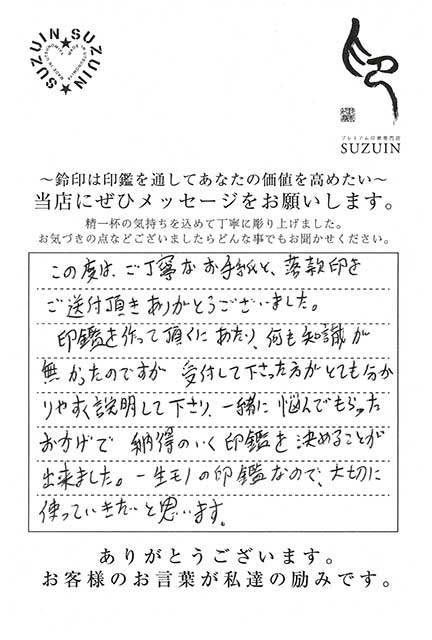 SUZUIN★SUZUIN★
印
プレミアム印章専門店
SUZUIN
～鈴印は印鑑を通してあなたの価値を高めたい～
当店にぜひメッセージをお願いします。
精一杯の気持ちを込めて丁寧に彫り上げました。
お気づきの点などございましたらどんな事でもお聞かせください。
この度は、ご丁寧なお手紙と、落款印を
ご送付頂きありがとうございました。
印鑑を作って頂くにあたり、何も知識が
無かったのですが 受付して下さった方がとても分か
りやすく説明して下さり、一緒に悩んでもらった
おかげで 納得のいく印鑑を決めることが
出来ました。一生モノの印鑑なので、大切に
使っていきたいと思います。
ありがとうございます。
お客様のお言葉が私達の励みです。